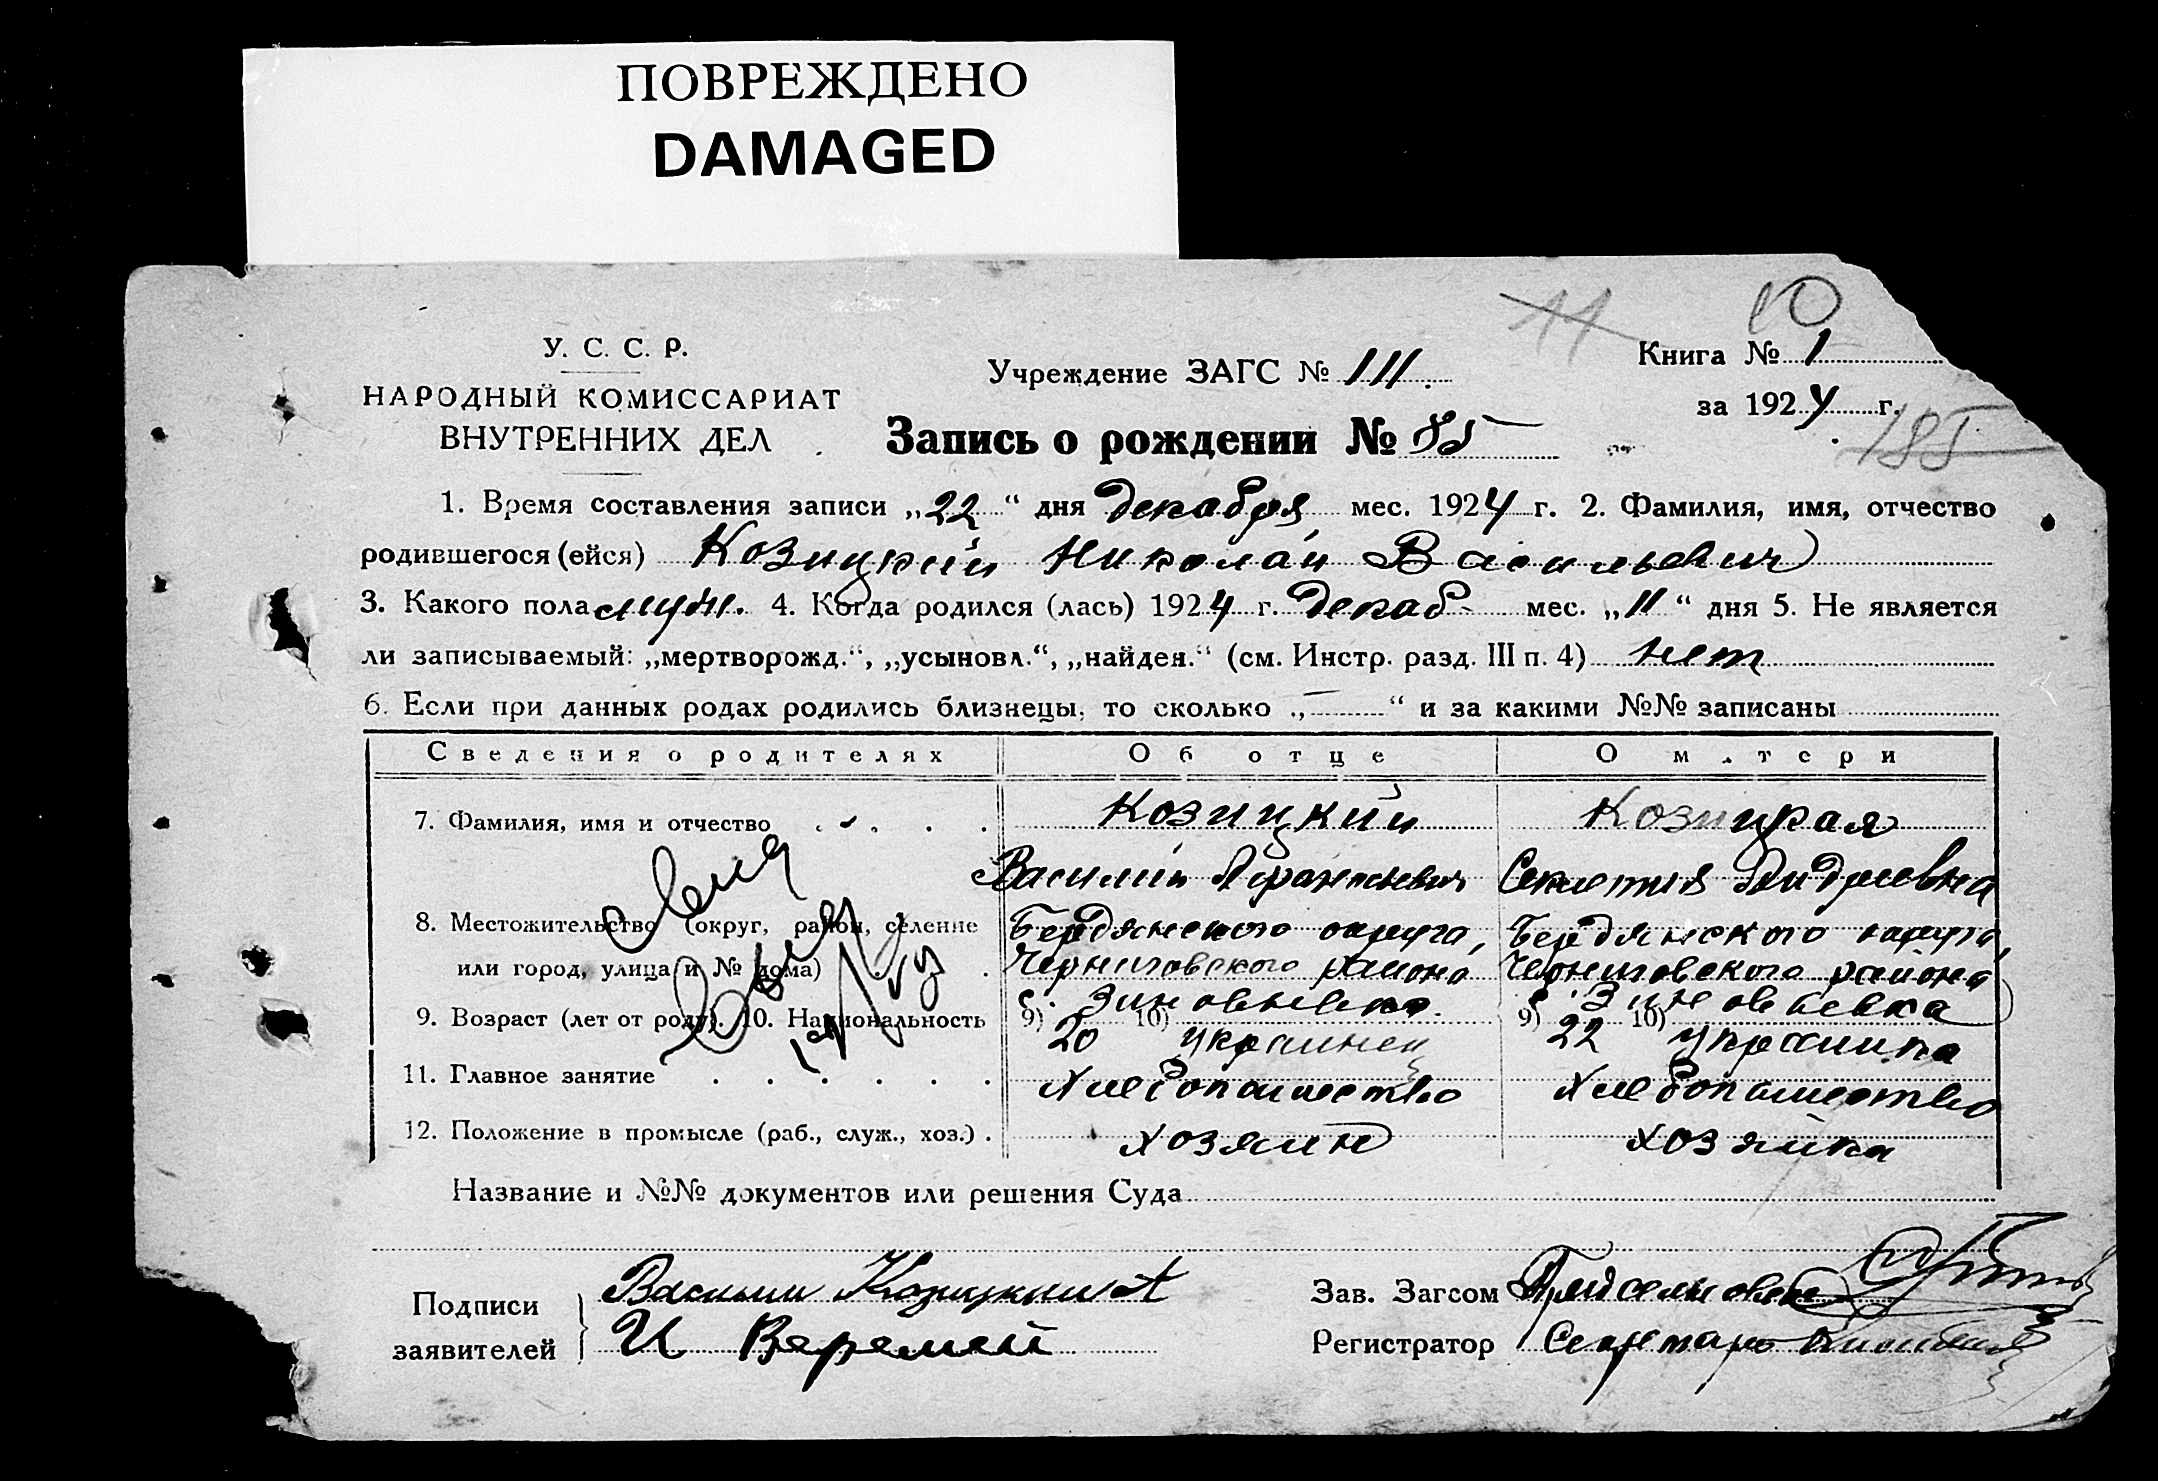 ПОВРЕЖДЕНО
DAMAGED
11
10
У. С. С. Р.
Учреждение ЗАГС № 111.
Книга № 1
НАРОДНЫЙ КОМИССАРИАТ
за 1924 г.
ВНУТРЕННИХ ДЕЛ
Запись о рождении № 85
185
1. Время составления записи „22“ дня декабря мес. 1924 г. 2. Фамилия, имя, отчество
родившегося (ейся) Козицкий Николай Васильевич
3. Какого пола муж. 4. Когда родился (лась) 1924 г. декаб мес. „11“ дня 5. Не является
ли записываемый: „мертворожд.“, „усыновл.“, „найден.“ (см. Инстр. разд. III п. 4) нет
6. Если при данных родах родились близнецы, то сколько „—“ и за какими №№ записаны
Сведения о родителях Об отце О матери
7. Фамилия, имя и отчество Козицкий Козицкая
Василий
8. Местожительство (округ, район, селение Бердянского округа, Бердянского округа,
или город, улица и № дома) Черниговского района Черниговского района
с. Зиновьевка. с. Зиновьевка
9. Возраст (лет от роду). 10. Национальность 9) 20 10) украинец 9) 22 10) украинка
11. Главное занятие Хлебопашество Хлебопашество
12. Положение в промысле (раб., служ., хоз.) хозяин хозяйка
Название и №№ документов или решения Суда
Подписи
заявителей
Василий Козицкий
И Веремей
Зав. Загсом
Регистратор Секретарь